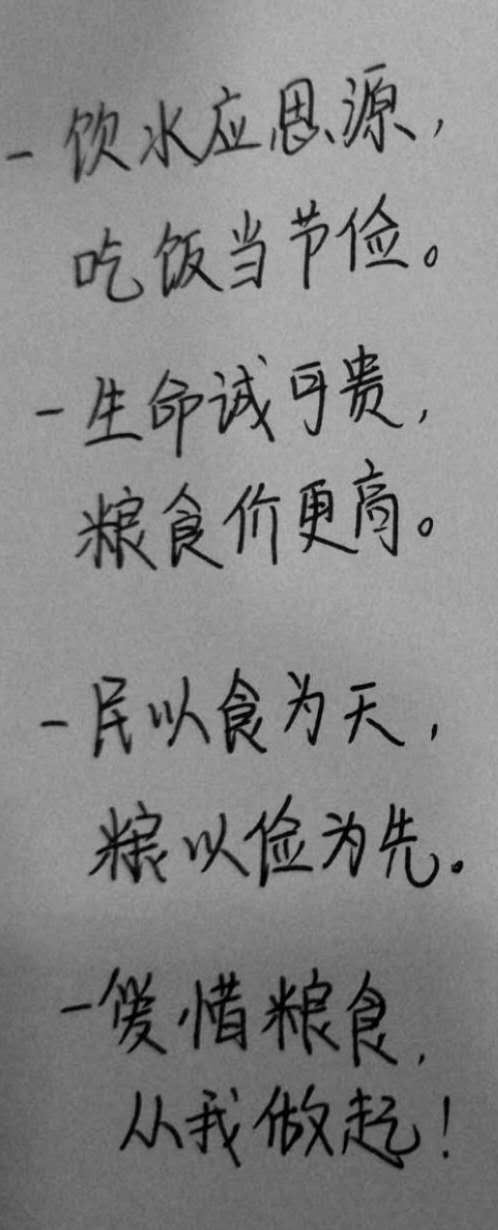 - 饮水应思源，
吃饭当节俭。
- 生命诚可贵，
粮食价更高。
- 民以食为天，
粮以俭为先。
- 爱惜粮食，
从我做起！